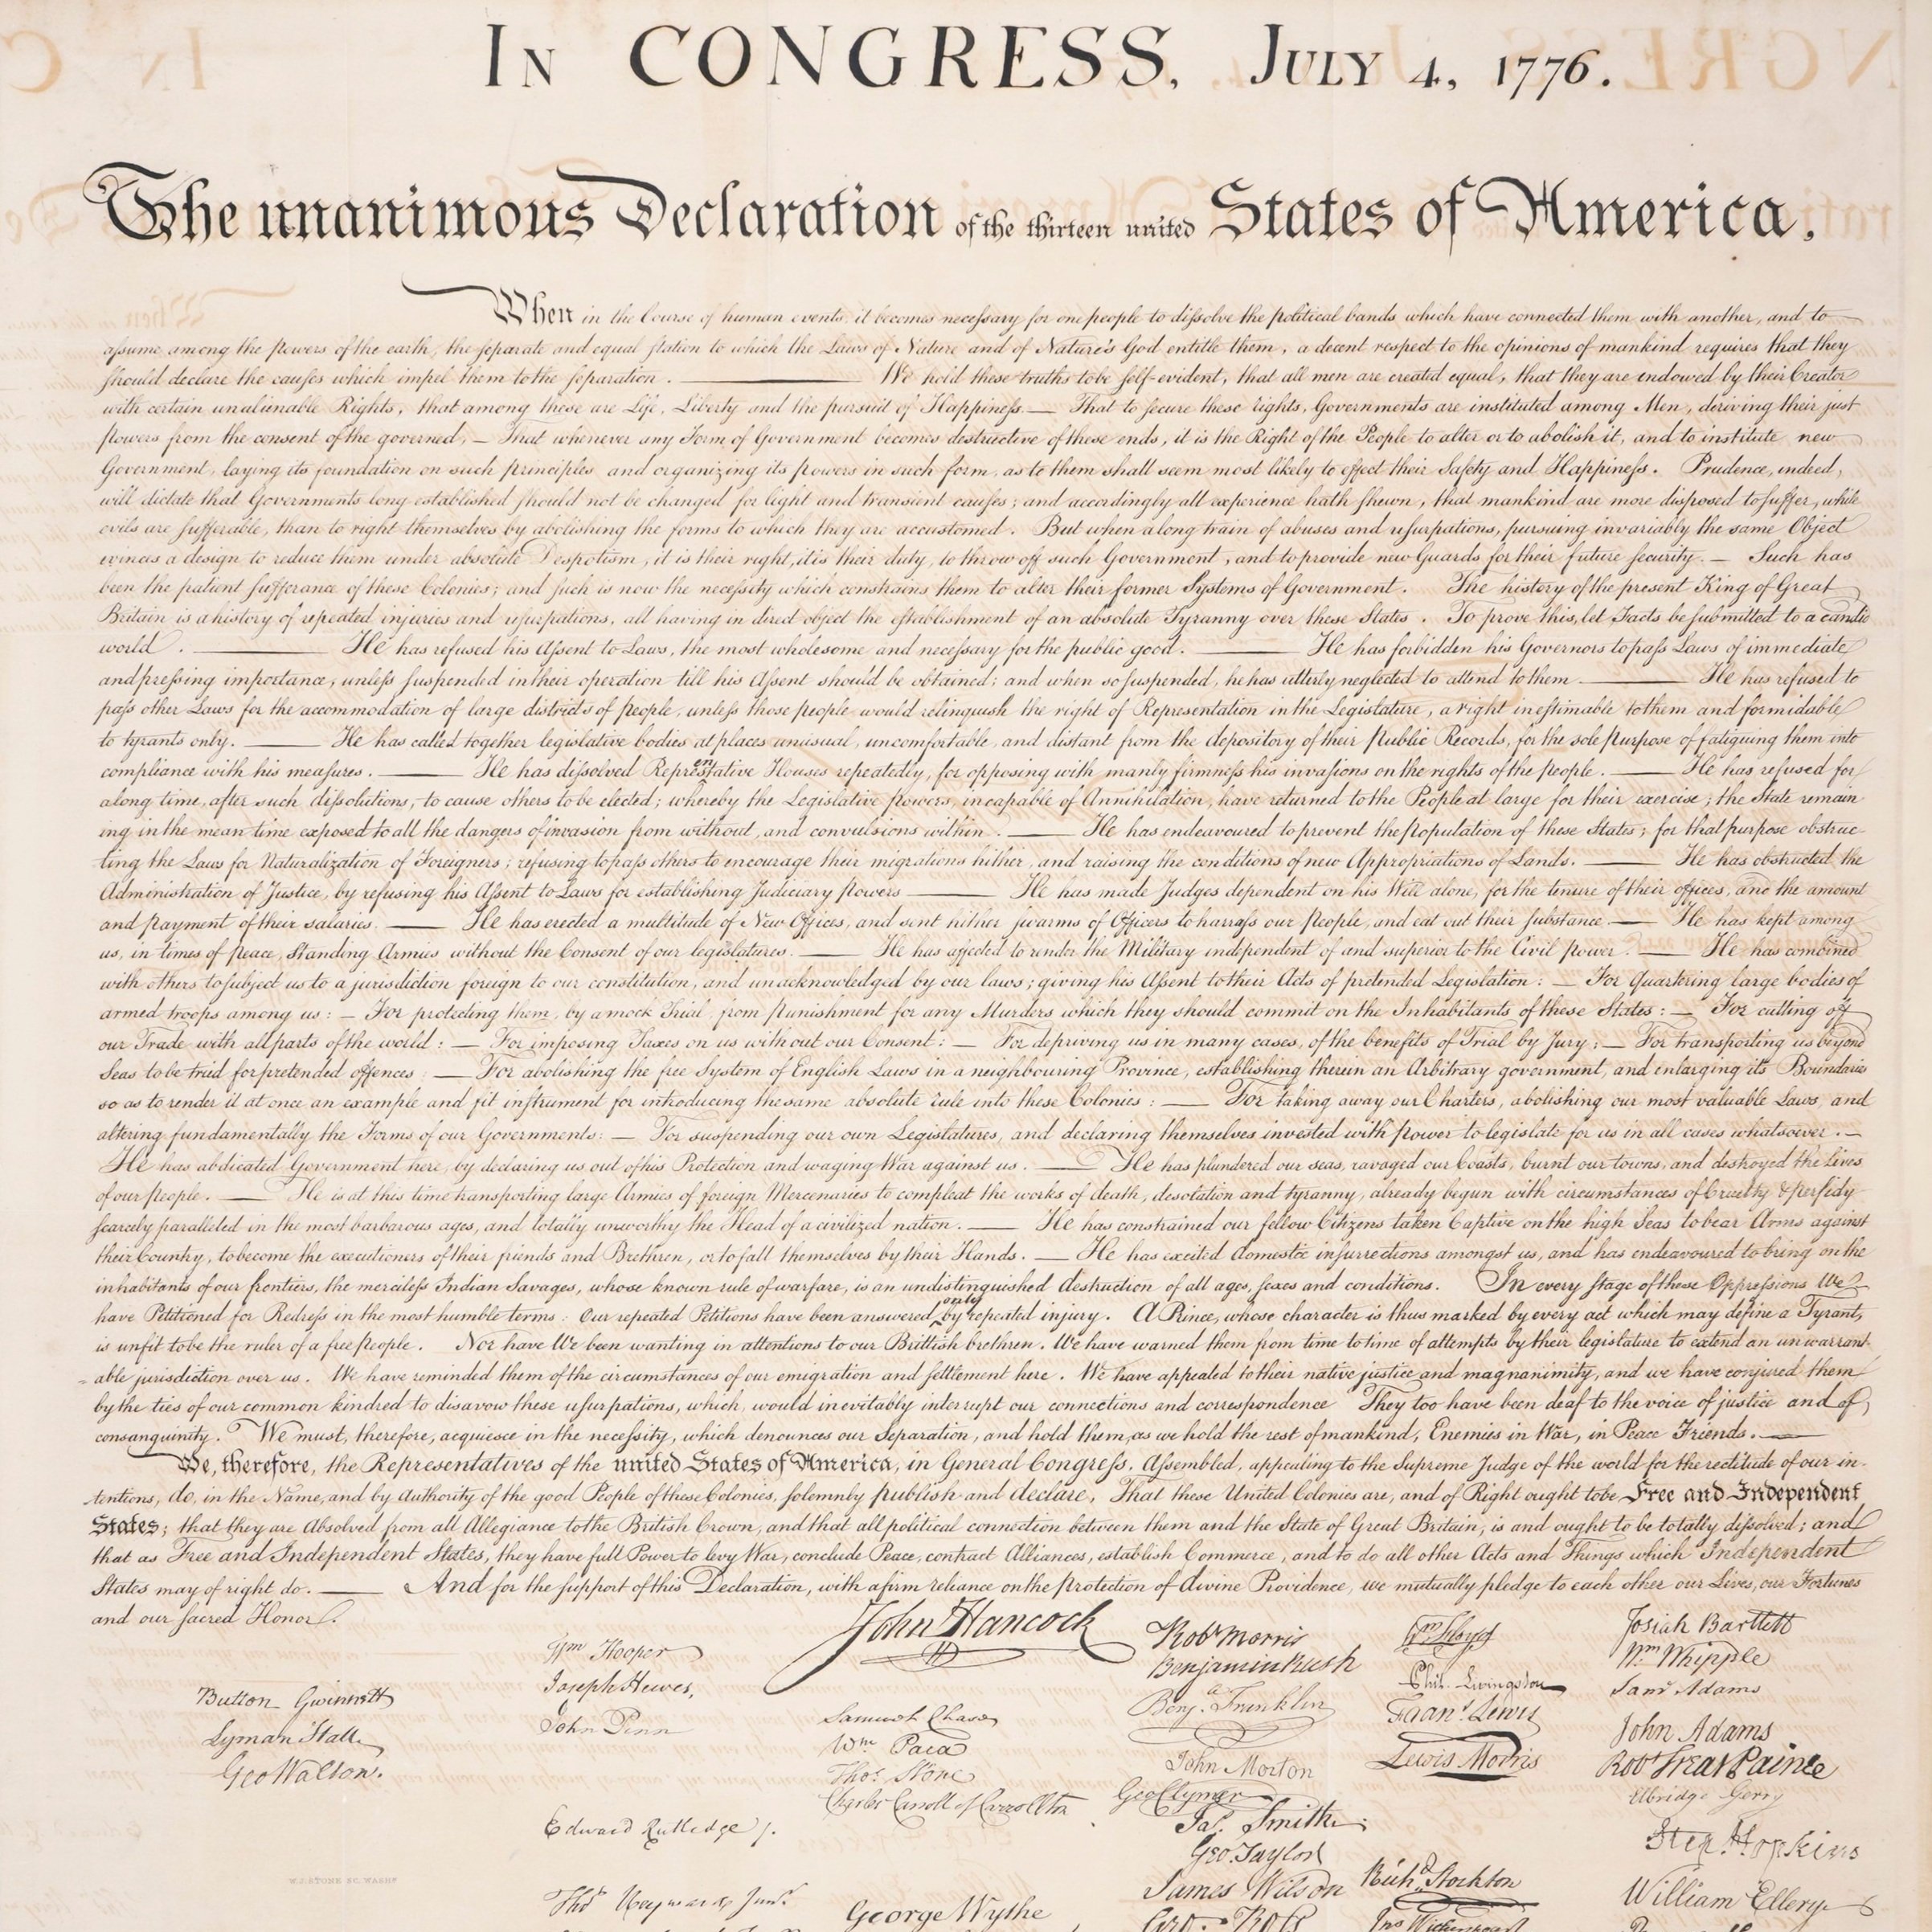 In CONGRESS, July 4, 1776.
The unanimous Declaration of the thirteen united States of America,
When in the Course of human events, it becomes necessary for one people to dissolve the political bands which have connected them with another, and to
assume among the powers of the earth, the separate and equal station to which the Laws of Nature and of Nature's God entitle them, a decent respect to the opinions of mankind requires that they
should declare the causes which impel them to the separation. — We hold these truths to be self-evident, that all men are created equal, that they are endowed by their Creator
with certain unalienable Rights, that among these are Life, Liberty and the pursuit of Happiness. — That to secure these rights, Governments are instituted among Men, deriving their just
powers from the consent of the governed, — That whenever any Form of Government becomes destructive of these ends, it is the Right of the People to alter or to abolish it, and to institute new
Government, laying its foundation on such principles and organizing its powers in such form, as to them shall seem most likely to effect their Safety and Happiness. Prudence, indeed,
will dictate that Governments long established should not be changed for light and transient causes; and accordingly all experience hath shewn, that mankind are more disposed to suffer, while
evils are sufferable, than to right themselves by abolishing the forms to which they are accustomed. But when a long train of abuses and usurpations, pursuing invariably the same Object
evinces a design to reduce them under absolute Despotism, it is their right, it is their duty, to throw off such Government, and to provide new Guards for their future security. — Such has
been the patient sufferance of these Colonies; and such is now the necessity which constrains them to alter their former Systems of Government. The history of the present King of Great
Britain is a history of repeated injuries and usurpations, all having in direct object the establishment of an absolute Tyranny over these States. To prove this, let Facts be submitted to a candid
world. — He has refused his Assent to Laws, the most wholesome and necessary for the public good. — He has forbidden his Governors to pass Laws of immediate
and pressing importance, unless suspended in their operation till his Assent should be obtained; and when so suspended, he has utterly neglected to attend to them. — He has refused to
pass other Laws for the accommodation of large districts of people, unless those people would relinquish the right of Representation in the Legislature, a right inestimable to them and formidable
to tyrants only. — He has called together legislative bodies at places unusual, uncomfortable, and distant from the depository of their Public Records, for the sole purpose of fatiguing them into
compliance with his measures. — He has dissolved Representative Houses repeatedly, for opposing with manly firmness his invasions on the rights of the people. — He has refused for
a long time, after such dissolutions, to cause others to be elected; whereby the Legislative powers, incapable of Annihilation, have returned to the People at large for their exercise; the State remain
ing in the mean time exposed to all the dangers of invasion from without, and convulsions within. — He has endeavoured to prevent the population of these States; for that purpose obstruc-
ting the Laws for Naturalization of Foreigners; refusing to pass others to encourage their migrations hither, and raising the conditions of new Appropriations of Lands. — He has obstructed the
Administration of Justice, by refusing his Assent to Laws for establishing Judiciary powers. — He has made Judges dependent on his Will alone, for the tenure of their offices, and the amount
and payment of their salaries. — He has erected a multitude of New Offices, and sent hither swarms of Officers to harrass our people, and eat out their substance. — He has kept among
us, in times of peace, Standing Armies without the Consent of our legislatures. — He has affected to render the Military independent of and superior to the Civil power. — He has combined
with others to subject us to a jurisdiction foreign to our constitution, and unacknowledged by our laws; giving his Assent to their Acts of pretended Legislation: — For Quartering large bodies of
armed troops among us: — For protecting them, by a mock Trial, from punishment for any Murders which they should commit on the Inhabitants of these States: — For cutting off
our Trade with all parts of the world: — For imposing Taxes on us without our Consent: — For depriving us in many cases, of the benefits of Trial by Jury; — For transporting us beyond
Seas to be tried for pretended offences: — For abolishing the free System of English Laws in a neighbouring Province, establishing therein an Arbitrary government, and enlarging its Boundaries
so as to render it at once an example and fit instrument for introducing the same absolute rule into these Colonies: — For taking away our Charters, abolishing our most valuable Laws, and
altering fundamentally the Forms of our Governments: — For suspending our own Legislatures, and declaring themselves invested with power to legislate for us in all cases whatsoever. —
He has abdicated Government here, by declaring us out of his Protection and waging War against us. — He has plundered our seas, ravaged our Coasts, burnt our towns, and destroyed the Lives
of our people. — He is at this time transporting large Armies of foreign Mercenaries to compleat the works of death, desolation and tyranny, already begun with circumstances of Cruelty & perfidy
scarcely paralleled in the most barbarous ages, and totally unworthy the Head of a civilized nation. — He has constrained our fellow Citizens taken Captive on the high Seas to bear Arms against
their Country, to become the executioners of their friends and Brethren, or to fall themselves by their Hands. — He has excited domestic insurrections amongst us, and has endeavoured to bring on the
inhabitants of our frontiers, the merciless Indian Savages, whose known rule of warfare, is an undistinguished destruction of all ages, sexes and conditions. In every stage of these Oppressions We
have Petitioned for Redress in the most humble terms: Our repeated Petitions have been answered only by repeated injury. A Prince, whose character is thus marked by every act which may define a Tyrant,
is unfit to be the ruler of a free people. Nor have We been wanting in attentions to our Brittish brethren. We have warned them from time to time of attempts by their legislature to extend an unwarrant-
-able jurisdiction over us. We have reminded them of the circumstances of our emigration and settlement here. We have appealed to their native justice and magnanimity, and we have conjured them
by the ties of our common kindred to disavow these usurpations, which, would inevitably interrupt our connections and correspondence They too have been deaf to the voice of justice and of
consanguinity. We must, therefore, acquiesce in the necessity, which denounces our Separation, and hold them, as we hold the rest of mankind, Enemies in War, in Peace Friends. —
We, therefore, the Representatives of the united States of America, in General Congress, Assembled, appealing to the Supreme Judge of the world for the rectitude of our in-
tentions, do, in the Name, and by Authority of the good People of these Colonies, solemnly publish and declare, That these United Colonies are, and of Right ought to be Free and Independent
States; that they are Absolved from all Allegiance to the British Crown, and that all political connection between them and the State of Great Britain, is and ought to be totally dissolved; and
that as Free and Independent States, they have full Power to levy War, conclude Peace, contract Alliances, establish Commerce, and to do all other Acts and Things which Independent
States may of right do. — And for the support of this Declaration, with a firm reliance on the protection of divine Providence, we mutually pledge to each other our Lives, our Fortunes
and our sacred Honor.
Button Gwinnett
Lyman Hall
Geo Walton.
W.J. STONE SC. WASHN
Wm Hooper
Joseph Hewes,
John Penn
Edward Rutledge /.
Thos Heyward Junr
John Hancock
Samuel Chase
Wm Paca
Thos Stone
Charles Carroll of Carrollton
George Wythe
Robt Morris
Benjamin Rush
Benja Franklin
John Morton
Geo Clymer
Jas. Smith
Geo. Taylor
James Wilson
Geo. Ross
Wm Floyd
Phil. Livingston
Frans. Lewis
Lewis Morris
Richd Stockton
Jno Witherspoon
Josiah Bartlett
Wm Whipple
Saml Adams
John Adams
Robt Treat Paine
Elbridge Gerry
Step. Hopkins
William Ellery